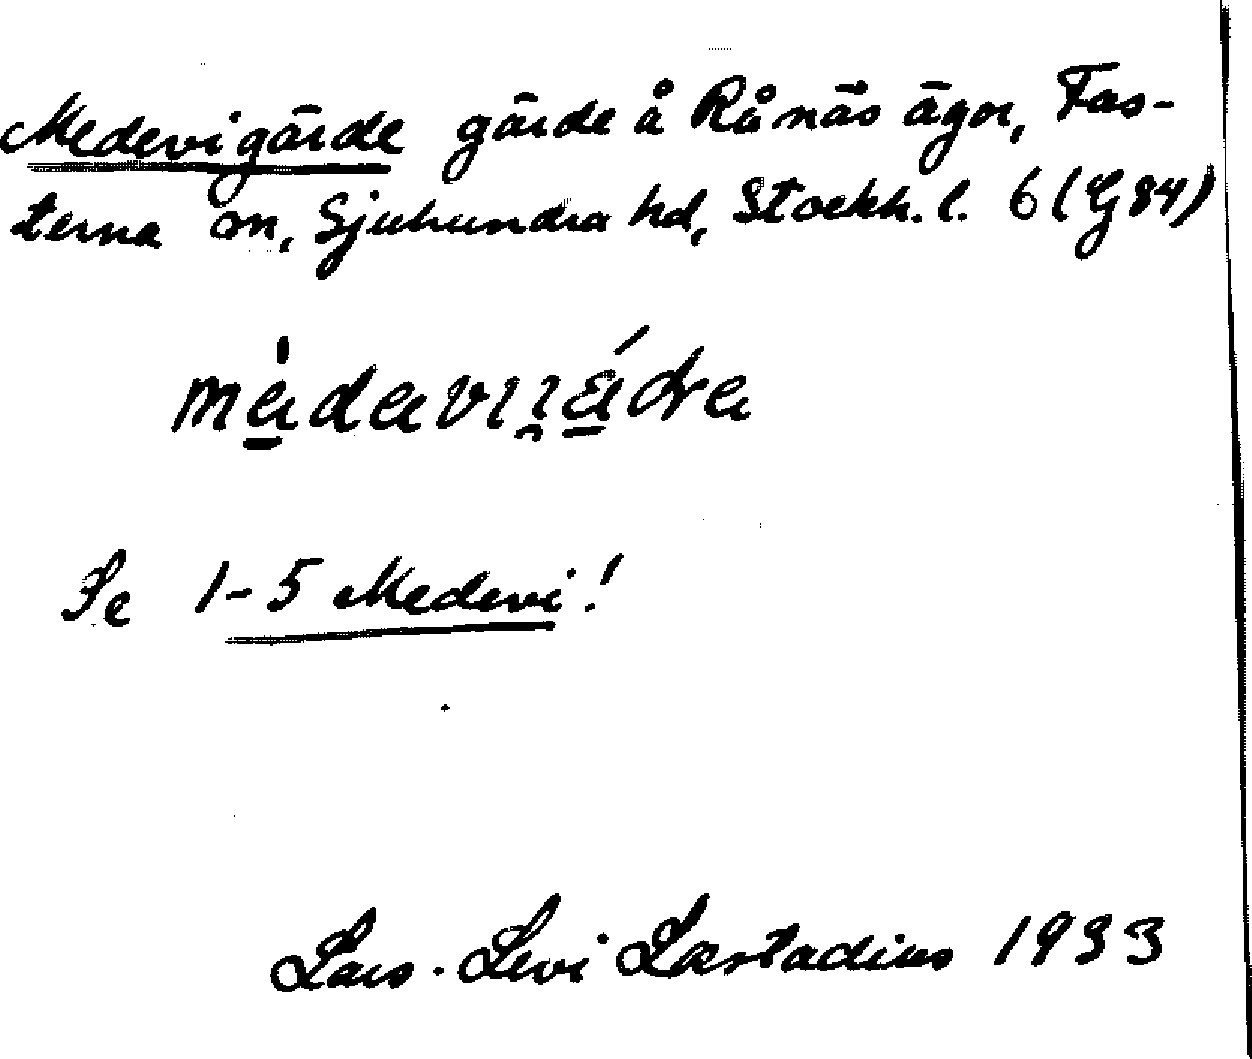 Medevigärde gärde å Rånäs ägor, Fas-
terna sn, Sjuhundra hd, Stockh. l. 6 (G 84)
Se 1-5 Medevi!
Lars-Levi Læstadius 1933